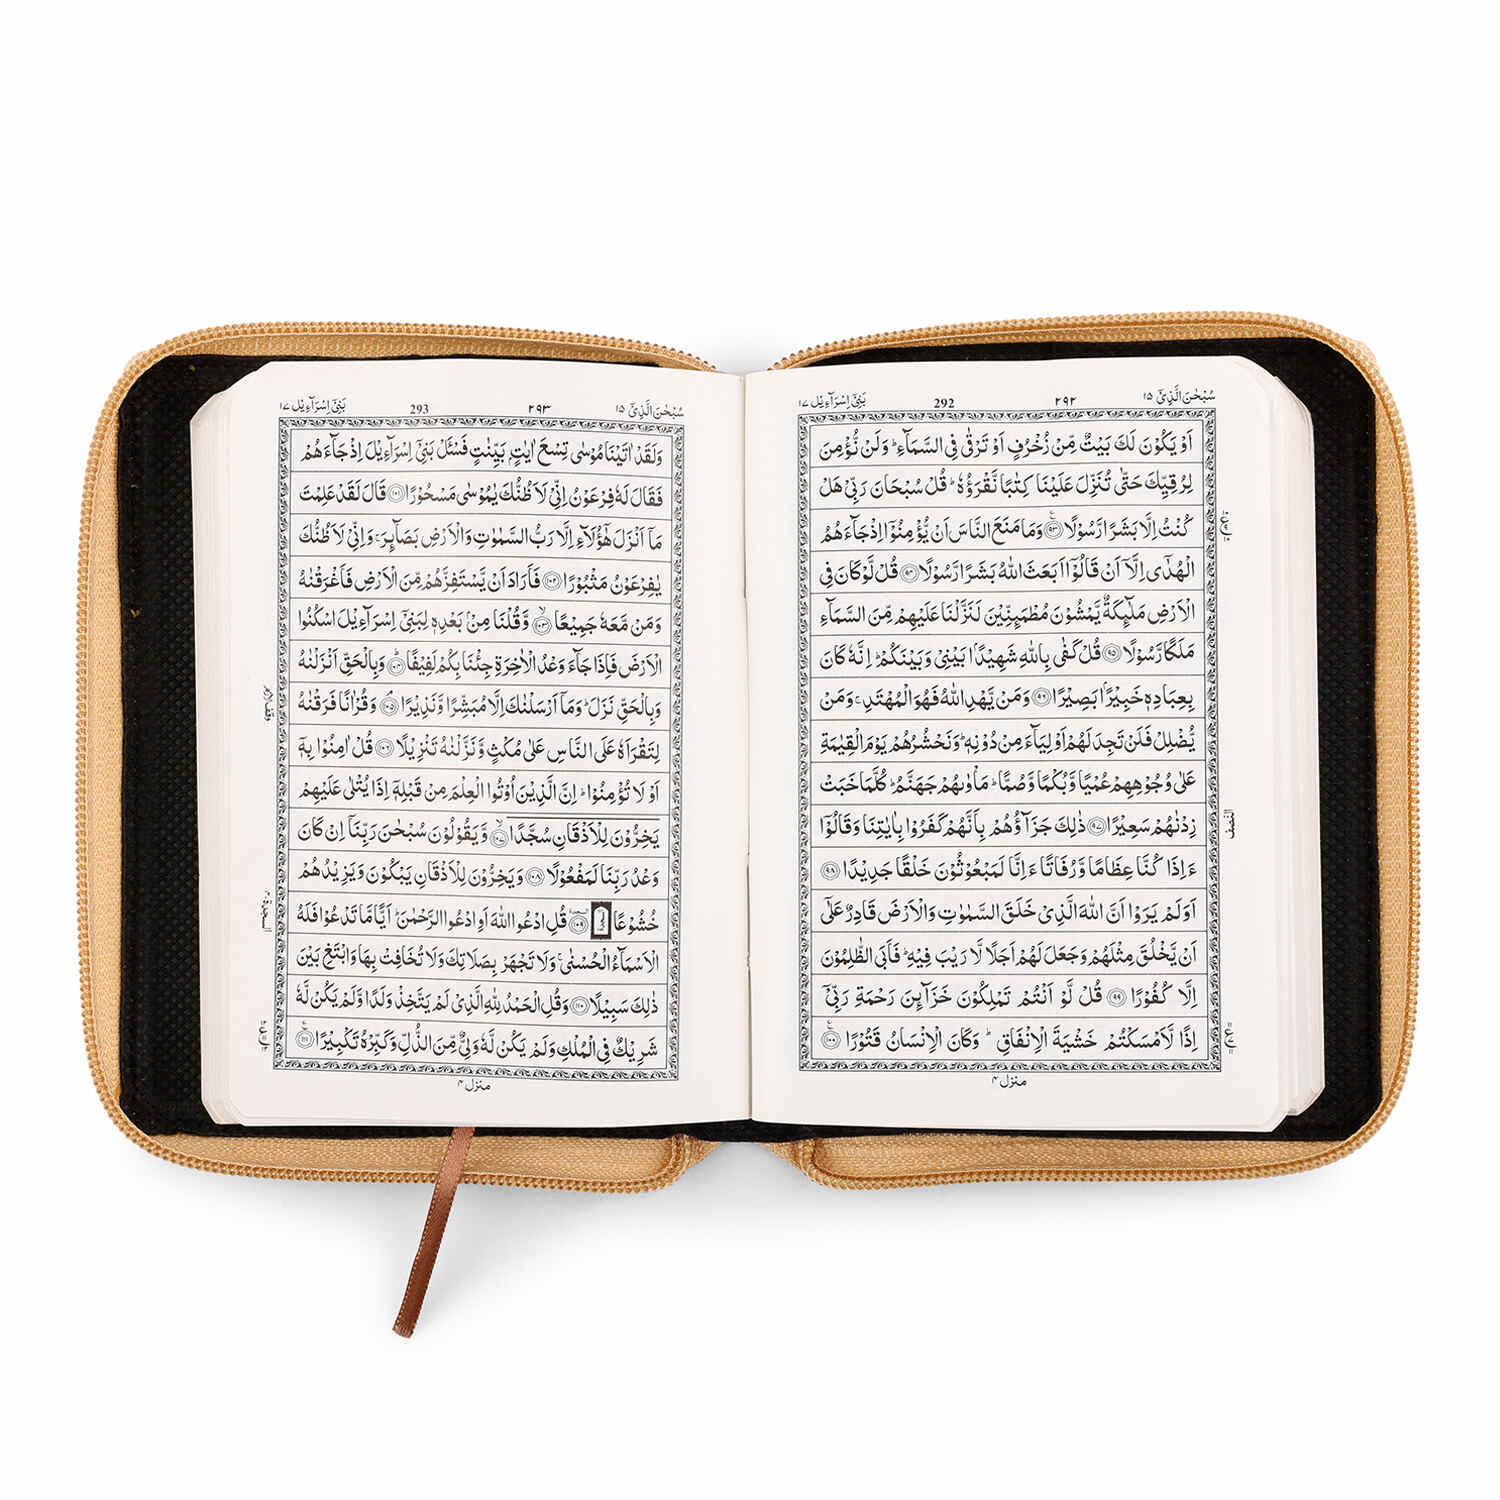 سُبْحٰنَ الَّذِیْۤ ١٥
٢٩٢
292
بَنِیْۤ اِسْرَآءِیْل ١٧
اَوْ یَكُوْنَ لَكَ بَیْتٌ مِّنْ زُخْرُفٍ اَوْ تَرْقٰی فِی السَّمَآءِ ؕ وَلَنْ نُّؤْمِنَ
لِرُقِیِّكَ حَتّٰی تُنَزِّلَ عَلَیْنَا كِتٰبًا نَّقْرَؤُهٗ ؕ قُلْ سُبْحَانَ رَبِّیْ هَلْ
كُنْتُ اِلَّا بَشَرًا رَّسُوْلًا ۝٩٣ وَمَا مَنَعَ النَّاسَ اَنْ یُّؤْمِنُوْۤا اِذْ جَآءَهُمُ
الْهُدٰۤی اِلَّاۤ اَنْ قَالُوْۤا اَبَعَثَ اللّٰهُ بَشَرًا رَّسُوْلًا ۝٩٤ قُلْ لَّوْ كَانَ فِی
الْاَرْضِ مَلٰٓئِكَةٌ یَّمْشُوْنَ مُطْمَئِنِّیْنَ لَنَزَّلْنَا عَلَیْهِمْ مِّنَ السَّمَآءِ
مَلَكًا رَّسُوْلًا ۝٩٥ قُلْ كَفٰی بِاللّٰهِ شَهِیْدًۢا بَیْنِیْ وَبَیْنَكُمْ ؕ اِنَّهٗ كَانَ
بِعِبَادِهٖ خَبِیْرًۢا بَصِیْرًا ۝٩٦ وَمَنْ یَّهْدِ اللّٰهُ فَهُوَ الْمُهْتَدِ ۚ وَمَنْ
یُّضْلِلْ فَلَنْ تَجِدَ لَهُمْ اَوْلِیَآءَ مِنْ دُوْنِهٖ ؕ وَنَحْشُرُهُمْ یَوْمَ الْقِیٰمَةِ
عَلٰی وُجُوْهِهِمْ عُمْیًا وَّبُكْمًا وَّصُمًّا ؕ مَاْوٰىهُمْ جَهَنَّمُ ؕ كُلَّمَا خَبَتْ
زِدْنٰهُمْ سَعِیْرًا ۝٩٧ ذٰلِكَ جَزَآؤُهُمْ بِاَنَّهُمْ كَفَرُوْا بِاٰیٰتِنَا وَقَالُوْۤا
ءَاِذَا كُنَّا عِظَامًا وَّرُفَاتًا ءَاِنَّا لَمَبْعُوْثُوْنَ خَلْقًا جَدِیْدًا ۝٩٨
اَوَلَمْ یَرَوْا اَنَّ اللّٰهَ الَّذِیْ خَلَقَ السَّمٰوٰتِ وَالْاَرْضَ قَادِرٌ عَلٰۤی
اَنْ یَّخْلُقَ مِثْلَهُمْ وَجَعَلَ لَهُمْ اَجَلًا لَّا رَیْبَ فِیْهِ ؕ فَاَبَی الظّٰلِمُوْنَ
اِلَّا كُفُوْرًا ۝٩٩ قُلْ لَّوْ اَنْتُمْ تَمْلِكُوْنَ خَزَآئِنَ رَحْمَةِ رَبِّیْۤ
اِذًا لَّاَمْسَكْتُمْ خَشْیَةَ الْاِنْفَاقِ ؕ وَكَانَ الْاِنْسَانُ قَتُوْرًا ۝١٠٠
منزل ٤
النصف
سُبْحٰنَ الَّذِیْۤ ١٥
٢٩٣
293
بَنِیْۤ اِسْرَآءِیْل ١٧
وَلَقَدْ اٰتَیْنَا مُوْسٰی تِسْعَ اٰیٰتٍۭ بَیِّنٰتٍ فَسْـَٔلْ بَنِیْۤ اِسْرَآءِیْلَ اِذْ جَآءَهُمْ
فَقَالَ لَهٗ فِرْعَوْنُ اِنِّیْ لَاَظُنُّكَ یٰمُوْسٰی مَسْحُوْرًا ۝١٠١ قَالَ لَقَدْ عَلِمْتَ
مَاۤ اَنْزَلَ هٰۤؤُلَآءِ اِلَّا رَبُّ السَّمٰوٰتِ وَالْاَرْضِ بَصَآئِرَ ۚ وَاِنِّیْ لَاَظُنُّكَ
یٰفِرْعَوْنُ مَثْبُوْرًا ۝١٠٢ فَاَرَادَ اَنْ یَّسْتَفِزَّهُمْ مِّنَ الْاَرْضِ فَاَغْرَقْنٰهُ
وَمَنْ مَّعَهٗ جَمِیْعًا ۝١٠٣ وَّقُلْنَا مِنْۢ بَعْدِهٖ لِبَنِیْۤ اِسْرَآءِیْلَ اسْكُنُوا
الْاَرْضَ فَاِذَا جَآءَ وَعْدُ الْاٰخِرَةِ جِئْنَا بِكُمْ لَفِیْفًا ۝١٠٤ وَبِالْحَقِّ اَنْزَلْنٰهُ
وَبِالْحَقِّ نَزَلَ ؕ وَمَاۤ اَرْسَلْنٰكَ اِلَّا مُبَشِّرًا وَّنَذِیْرًا ۝١٠٥ وَقُرْاٰنًا فَرَقْنٰهُ
لِتَقْرَاَهٗ عَلَی النَّاسِ عَلٰی مُكْثٍ وَّنَزَّلْنٰهُ تَنْزِیْلًا ۝١٠٦ قُلْ اٰمِنُوْا بِهٖۤ
اَوْ لَا تُؤْمِنُوْا ؕ اِنَّ الَّذِیْنَ اُوْتُوا الْعِلْمَ مِنْ قَبْلِهٖۤ اِذَا یُتْلٰی عَلَیْهِمْ
یَخِرُّوْنَ لِلْاَذْقَانِ سُجَّدًا ۝١٠٧ وَّیَقُوْلُوْنَ سُبْحٰنَ رَبِّنَاۤ اِنْ كَانَ
وَعْدُ رَبِّنَا لَمَفْعُوْلًا ۝١٠٨ وَیَخِرُّوْنَ لِلْاَذْقَانِ یَبْكُوْنَ وَیَزِیْدُهُمْ
خُشُوْعًا ۝١٠٩ قُلِ ادْعُوا اللّٰهَ اَوِ ادْعُوا الرَّحْمٰنَ ؕ اَیًّا مَّا تَدْعُوْا فَلَهُ
الْاَسْمَآءُ الْحُسْنٰی ۚ وَلَا تَجْهَرْ بِصَلَاتِكَ وَلَا تُخَافِتْ بِهَا وَابْتَغِ بَیْنَ
ذٰلِكَ سَبِیْلًا ۝١١٠ وَقُلِ الْحَمْدُ لِلّٰهِ الَّذِیْ لَمْ یَتَّخِذْ وَلَدًا وَّلَمْ یَكُنْ لَّهٗ
شَرِیْكٌ فِی الْمُلْكِ وَلَمْ یَكُنْ لَّهٗ وَلِیٌّ مِّنَ الذُّلِّ وَكَبِّرْهُ تَكْبِیْرًا ۝١١١
منزل ٤
السجدة ٤